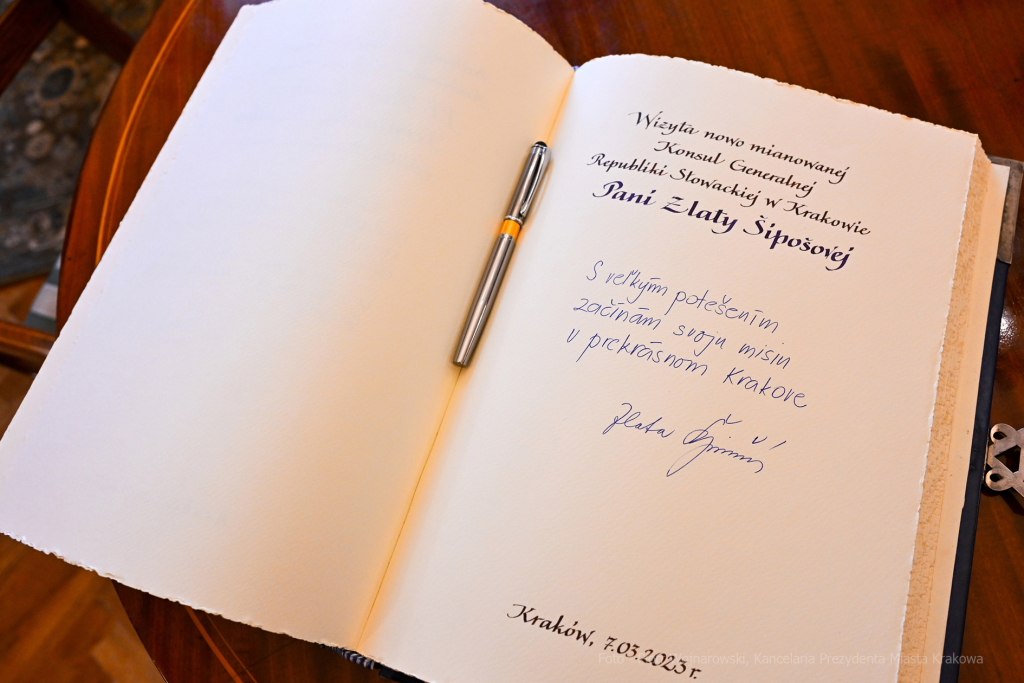 Wizyta nowo mianowanej
Konsul Generalnej
Republiki Słowackiej w Krakowie
Pani Zlaty Šipošovej
S veľkým potešením
začínam svoju misiu
v prekrásnom Krakove
Zlata
Kraków, 7.03.2023 r.
Kancelaria Prezydenta Miasta Krakowa